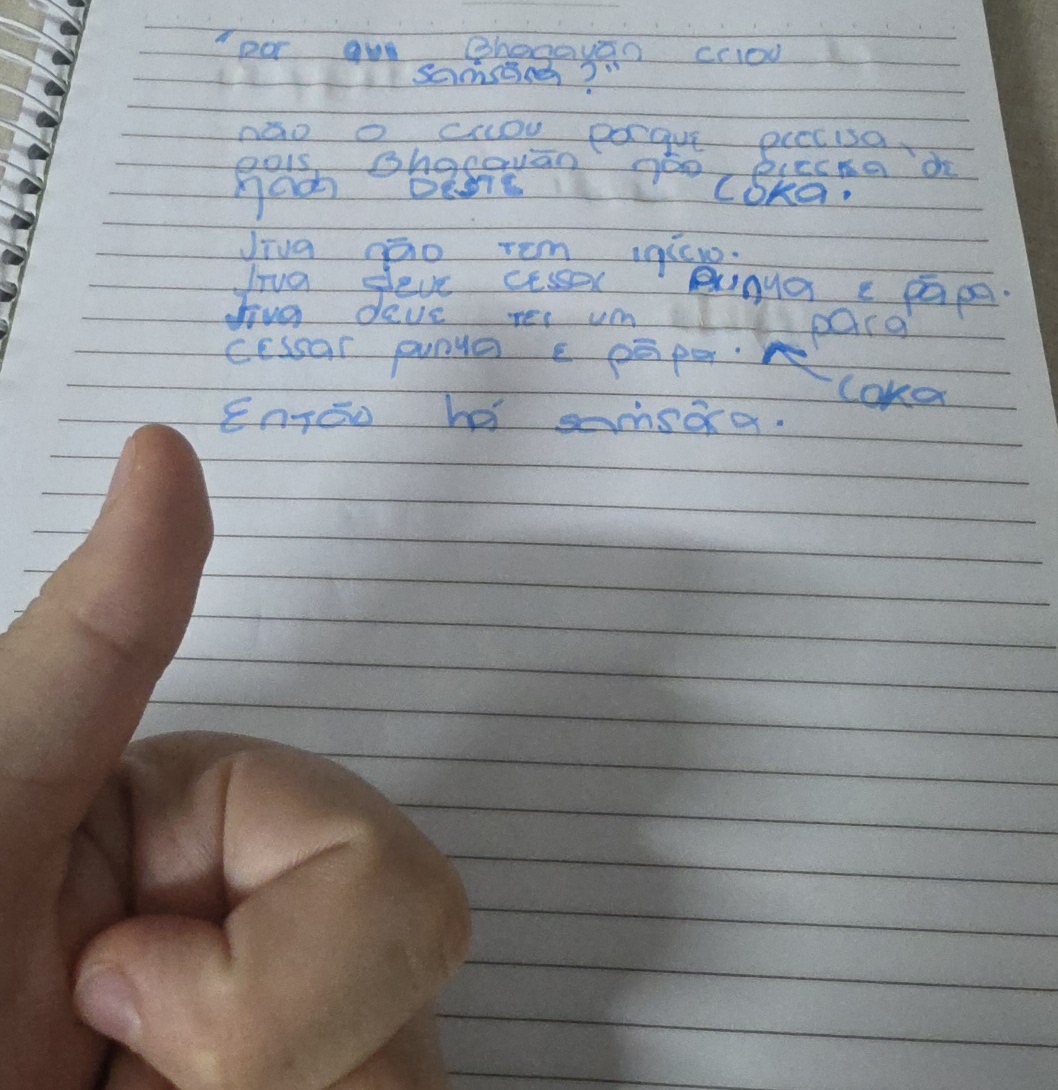 "por que Bhagavān criou
samsāra?"
não o criou porque precisa,
pois Bhagavān não precisa de
nada DESTE LOKA.
Jīva não tem início.
Jīva deve cessar punya e pāpa.
Jīva deve ter um para
cessar punya e pāpa.
LOKA
Então há samsāra.